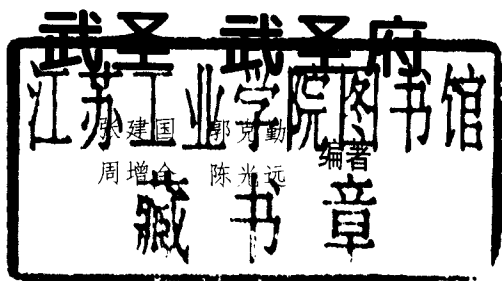 武圣 武圣府
江苏工业学院图书馆
张建国 郭克勤
编著
周增全 陈光远
藏书章